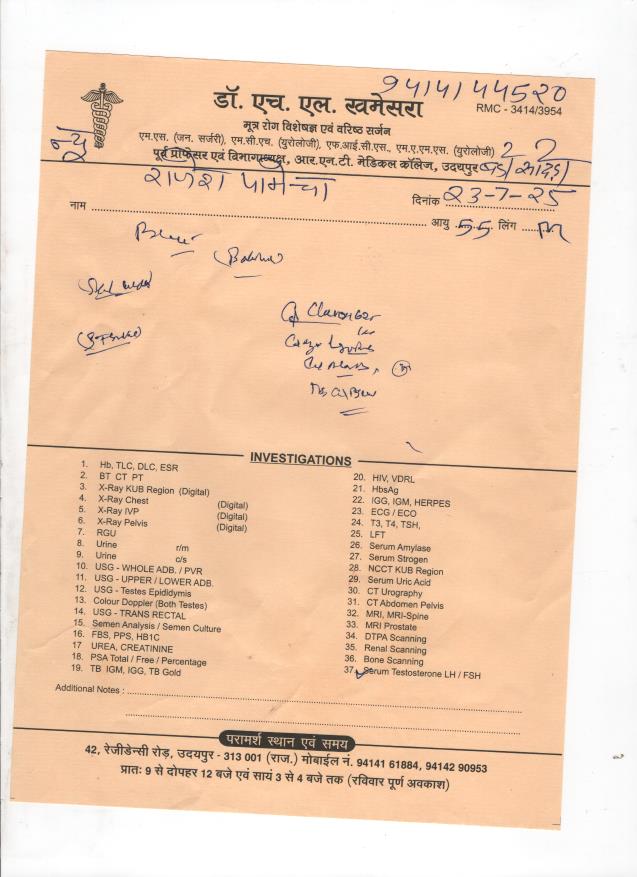 9414144520
डॉ. एच. एल. खमेसरा
RMC - 3414/3954
मूत्र रोग विशेषज्ञ एवं वरिष्ठ सर्जन
न्यू
एम.एस. (जन. सर्जरी), एम.सी.एच. (युरोलोजी), एफ.आई.सी.एस., एम.ए.एम.एस. (युरोलोजी)
पूर्व प्रोफेसर एवं विभागाध्यक्ष, आर.एन.टी. मेडिकल कॉलेज, उदयपुर
राजेश पामेचा
दिनांक 23-7-25
नाम
आयु 55 लिंग M
INVESTIGATIONS
1. Hb, TLC, DLC, ESR
2. BT CT PT
3. X-Ray KUB Region (Digital)
4. X-Ray Chest (Digital)
5. X-Ray IVP (Digital)
6. X-Ray Pelvis (Digital)
7. RGU
8. Urine r/m
9. Urine c/s
10. USG - WHOLE ADB. / PVR
11. USG - UPPER / LOWER ADB.
12. USG - Testes Epididymis
13. Colour Doppler (Both Testes)
14. USG - TRANS RECTAL
15. Semen Analysis / Semen Culture
16. FBS, PPS, HB1C
17 UREA, CREATININE
18. PSA Total / Free / Percentage
19. TB IGM, IGG, TB Gold
20. HIV, VDRL
21. HbsAg
22. IGG, IGM, HERPES
23. ECG / ECO
24. T3, T4, TSH,
25. LFT
26. Serum Amylase
27. Serum Strogen
28. NCCT KUB Region
29. Serum Uric Acid
30. CT Urography
31. CT Abdomen Pelvis
32. MRI, MRI-Spine
33. MRI Prostate
34. DTPA Scanning
35. Renal Scanning
36. Bone Scanning
37. Serum Testosterone LH / FSH
Additional Notes :
परामर्श स्थान एवं समय
42, रेजीडेन्सी रोड़, उदयपुर - 313 001 (राज.) मोबाईल नं. 94141 61884, 94142 90953
प्रातः 9 से दोपहर 12 बजे एवं सायं 3 से 4 बजे तक (रविवार पूर्ण अवकाश)